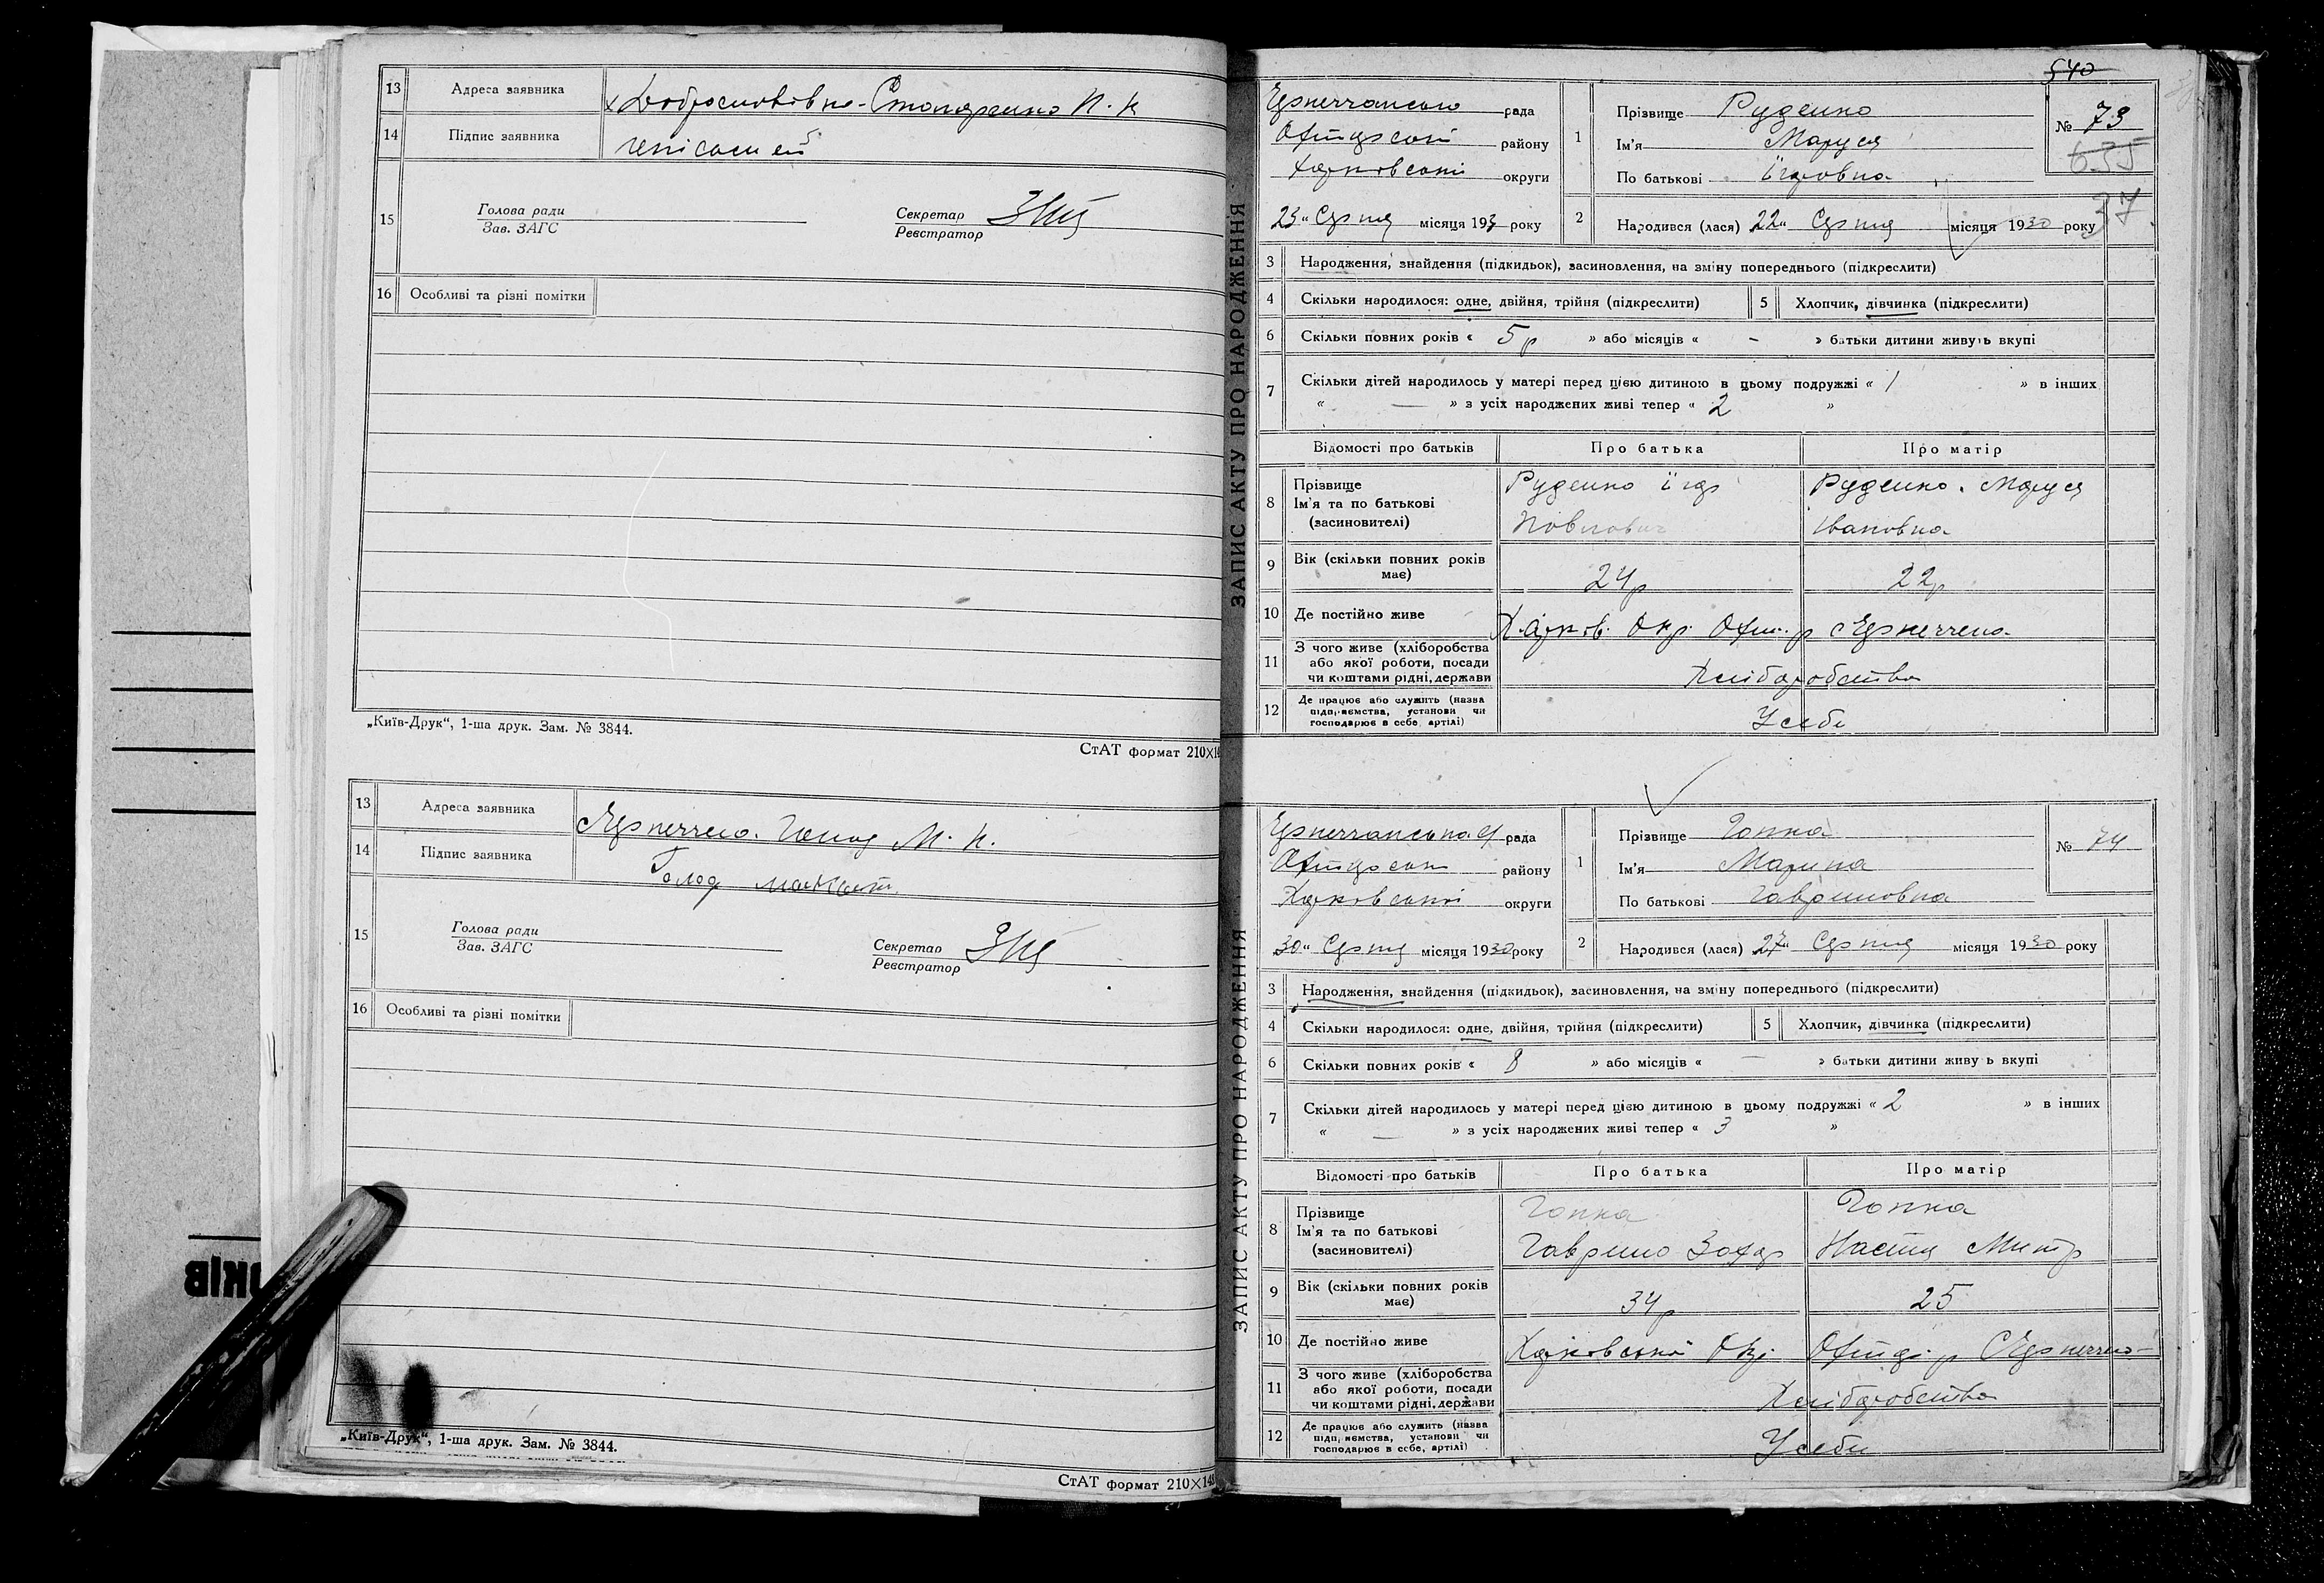 13 Адреса заявника
14 Підпис заявника
15 Голова ради
Зав. ЗАГС
Секретар
Реєстратор
16 Особливі та різні помітки
„Київ-Друк“, 1-ша друк. Зам. № 3844.
СтАТ формат 210×14
13 Адреса заявника М. К.
14 Підпис заявника Голод
15 Голова ради
Зав. ЗАГС
Секретар
Реєстратор
16 Особливі та різні помітки
„Київ-Друк“, 1-ша друк. Зам. № 3844.
СтАТ формат 210×148
ЗАПИС АКТУ ПРО НАРОДЖЕННЯ
540
рада
району
Харковської округи
23 " Серпня місяця 193 року
1 Прізвище Руденко
Ім'я Маруся
По батькові Ігоровна
№ 73
635
37
2 Народився (лася) 22 " Серпня місяця 1930 року
3 Народження, знайдення (підкидьок), засиновлення, на зміну попереднього (підкреслити)
4 Скільки народилося: одне, двійня, трійня (підкреслити) 5 Хлопчик, дівчинка (підкреслити)
6 Скільки повних років « 5 р » або місяців « – » батьки дитини живуть вкупі
7 Скільки дітей народилось у матері перед цією дитиною в цьому подружжі « 1 » в інших
« — » з усіх народжених живі тепер « 2 »
Відомості про батьків Про батька Про матір
8 Прізвище Руденко Ігор Руденко Маруся
Ім'я та по батькові
(засновителі) Павлович Івановна
9 Вік (скільки повних років має) 24 р 22 р
10 Де постійно живе Харків. Окр.
11 З чого живе (хліборобства або якої роботи, посади чи коштами рідні, держави Хліборобство
12 Де працює або служить (назва підприємства, установи чи господарює в себе, артілі) У себе
ЗАПИС АКТУ ПРО НАРОДЖЕННЯ
рада
району
Харковської округи
30 " Серпня місяця 1930 року
1 Прізвище Гопка
Ім'я Марина
По батькові Гавриловна
№ 74
2 Народився (лася) 27 " Серпня місяця 1930 року
3 Народження, знайдення (підкидьок), засиновлення, на зміну попереднього (підкреслити)
4 Скільки народилося: одне, двійня, трійня (підкреслити) 5 Хлопчик, дівчинка (підкреслити)
6 Скільки повних років « 8 » або місяців « — » батьки дитини живу ь вкупі
7 Скільки дітей народилось у матері перед цією дитиною в цьому подружжі « 2 » в інших
« — » з усіх народжених живі тепер « 3 »
Відомості про батьків Про батька Про матір
8 Прізвище Гопка Гопка
Ім'я та по батькові
(засиновителі) Гаврило Захар Настя Митр
9 Вік (скільки повних років має) 34 р 25
10 Де постійно живе Харковської Окр.
11 З чого живе (хліборобства або якої роботи, посади чи коштами рідні, держави Хліборобство
12 Де працює або служить (назва підприємства, установи чи господарює в себе, артілі) У себе